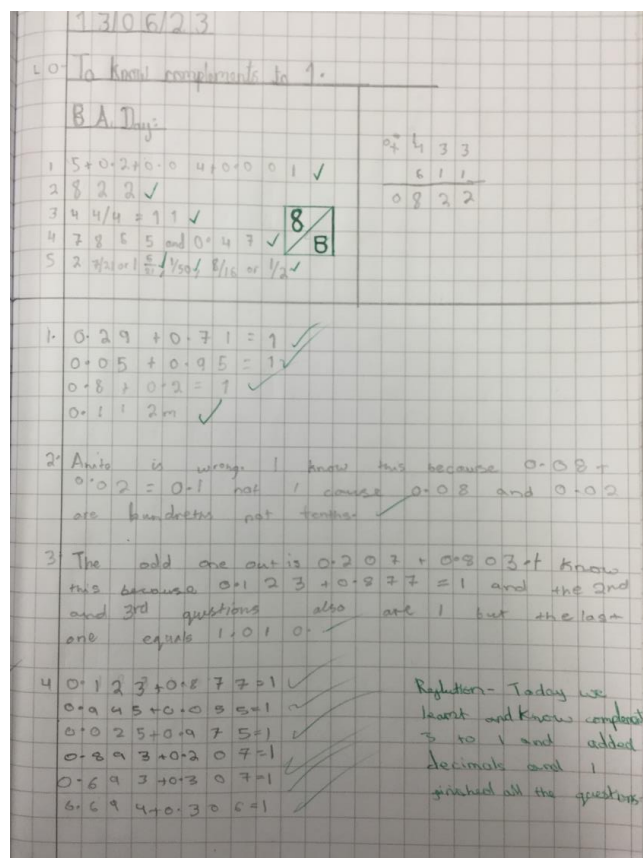 13/06/23
LO- To know complements to 1.
B A Day:
1 5+0.2+0.04+0.001 ✓
2 822 ✓
3 44/4 = 11 ✓
4 7855 and 0.47 ✓
5 2 7/21 or 1 1/50 8/16 or 1/2 ✓
8/B
0.433
611
0822
1. 0.29 + 0.71 = 1 ✓
0.05 + 0.95 = 1 ✓
0.8 + 0.2 = 1 ✓
0.112m ✓
2. Anita is wrong. I know this because 0.08+
0.02 = 0.1 not 1 cause 0.08 and 0.02
are hundreths not tenths.
3 The odd one out is 0.207 + 0.803. I know
this because 0.123 + 0.877 = 1 and the 2nd
and 3rd questions also are 1 but the last
one equals 1.010.
4 0.123+0.877=1
0.945+0.055=1
0.025+0.975=1
0.893+0.207=1
0.693+0.307=1
6.694+0.306=1
Reflection- Today we
learnt and know
3 to 1 and added
decimals and I
finished all the questions.